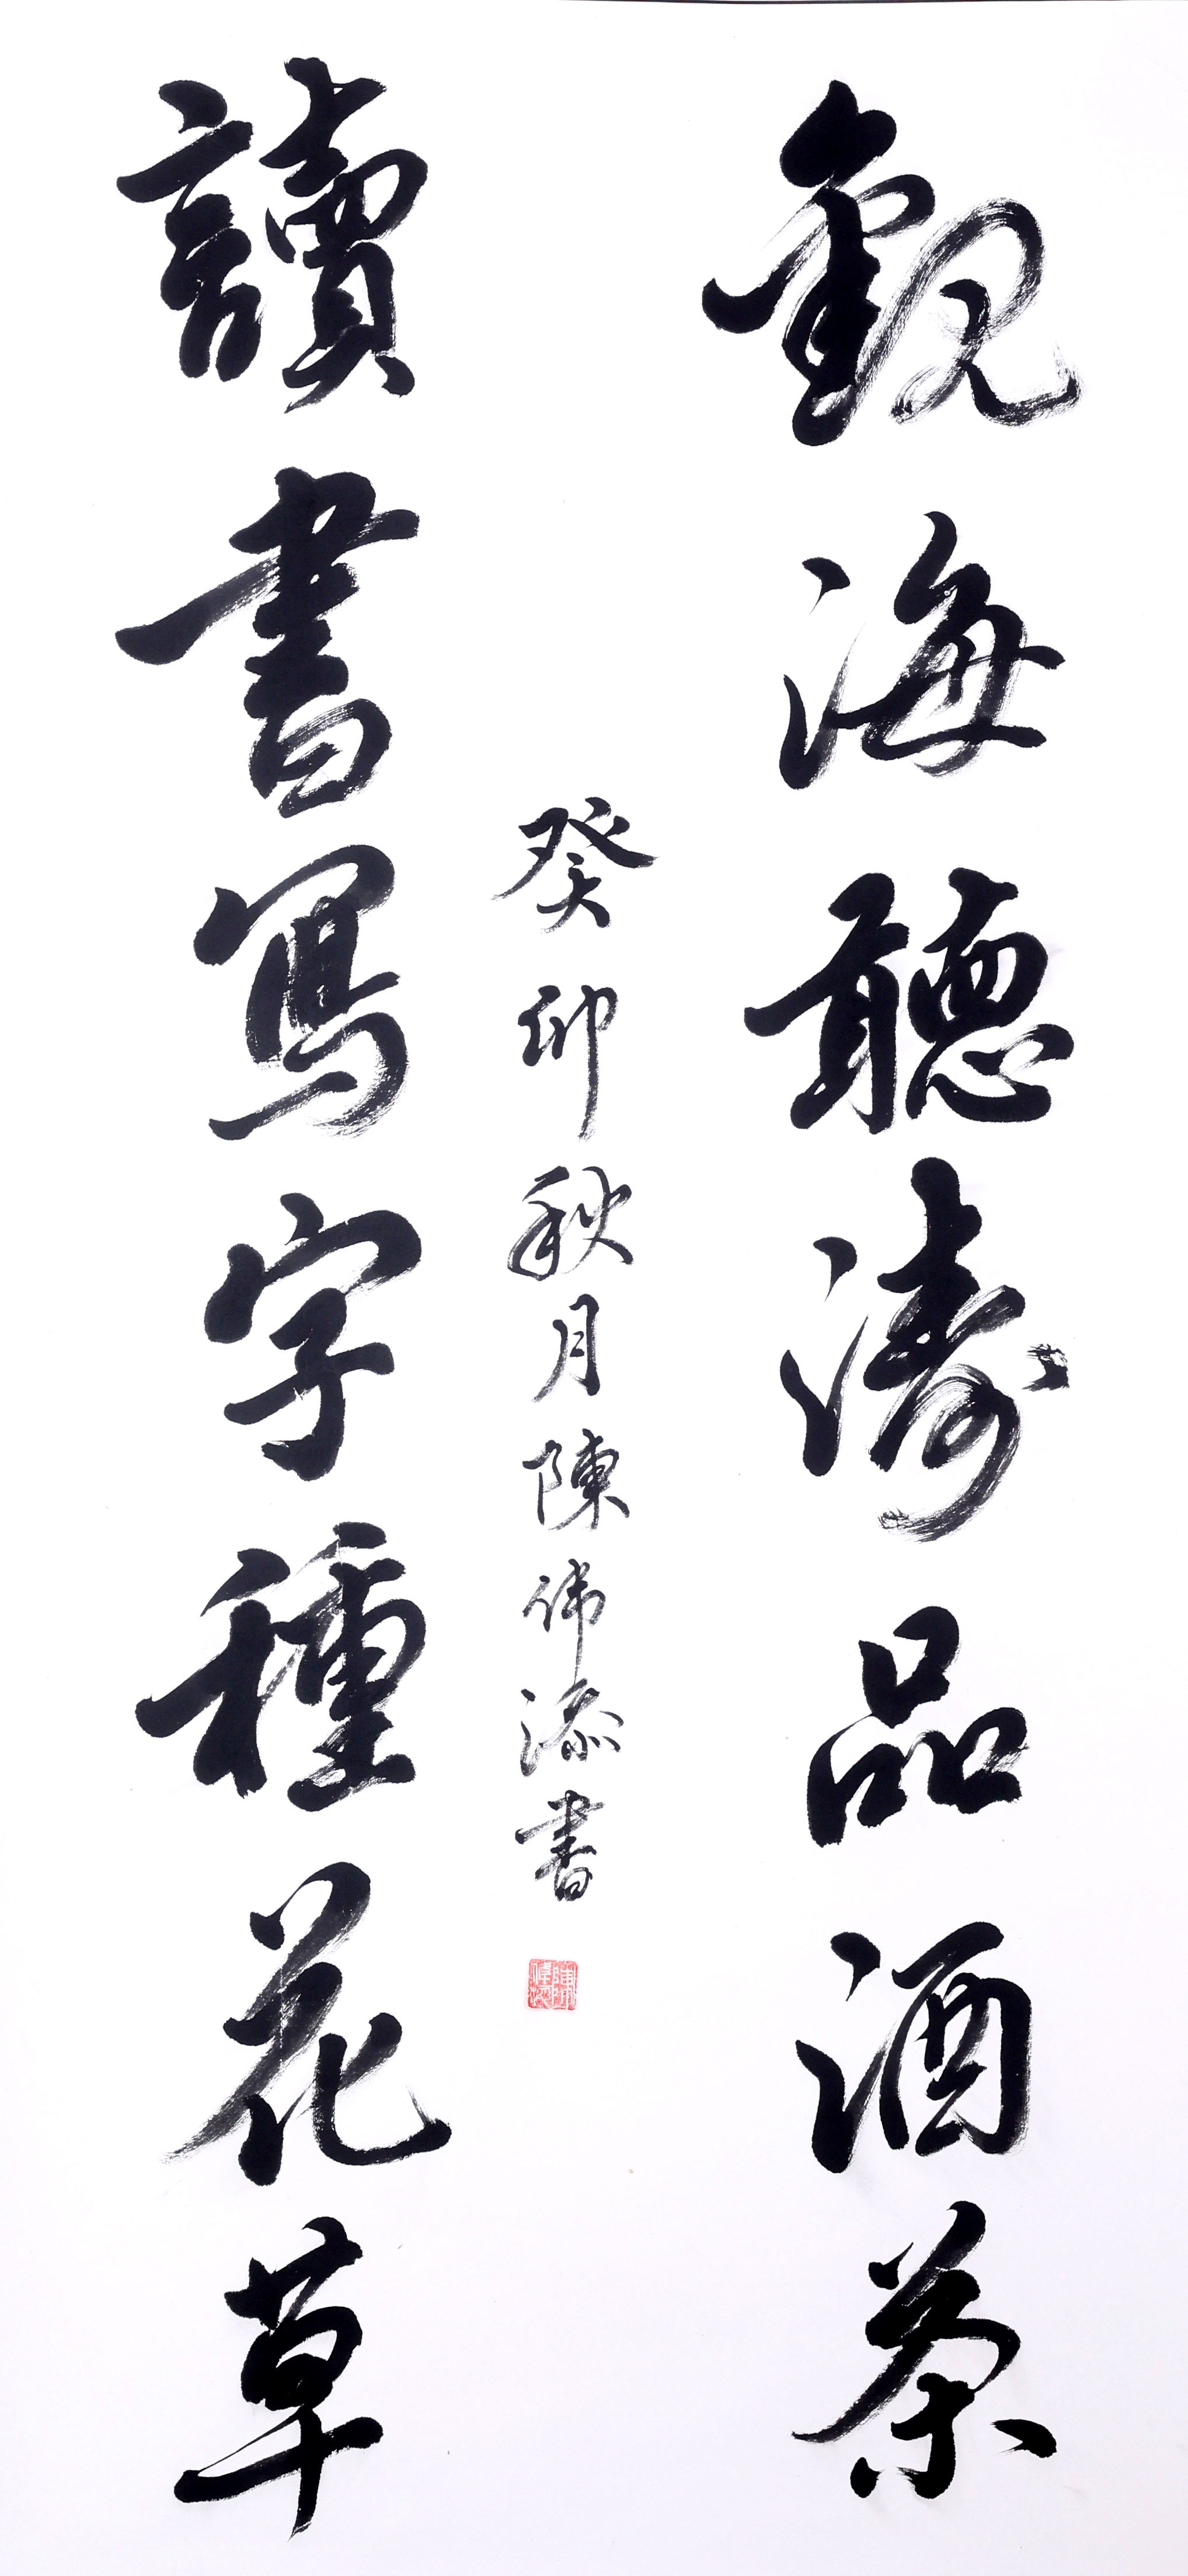 觀海聽濤品酒茶
讀書寫字種花草
癸卯秋月陳偉添書
陳偉添